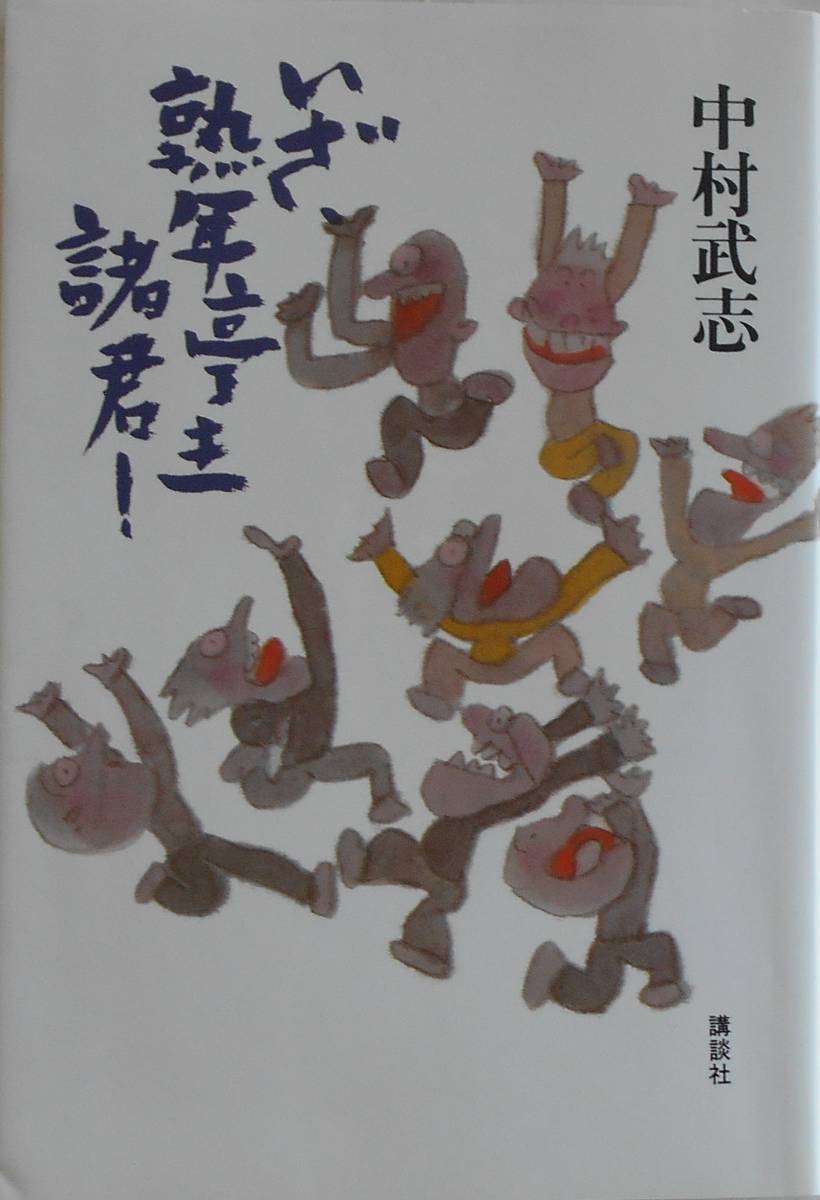 中村武志
いざ、
熟年亭主
諸君!
講談社